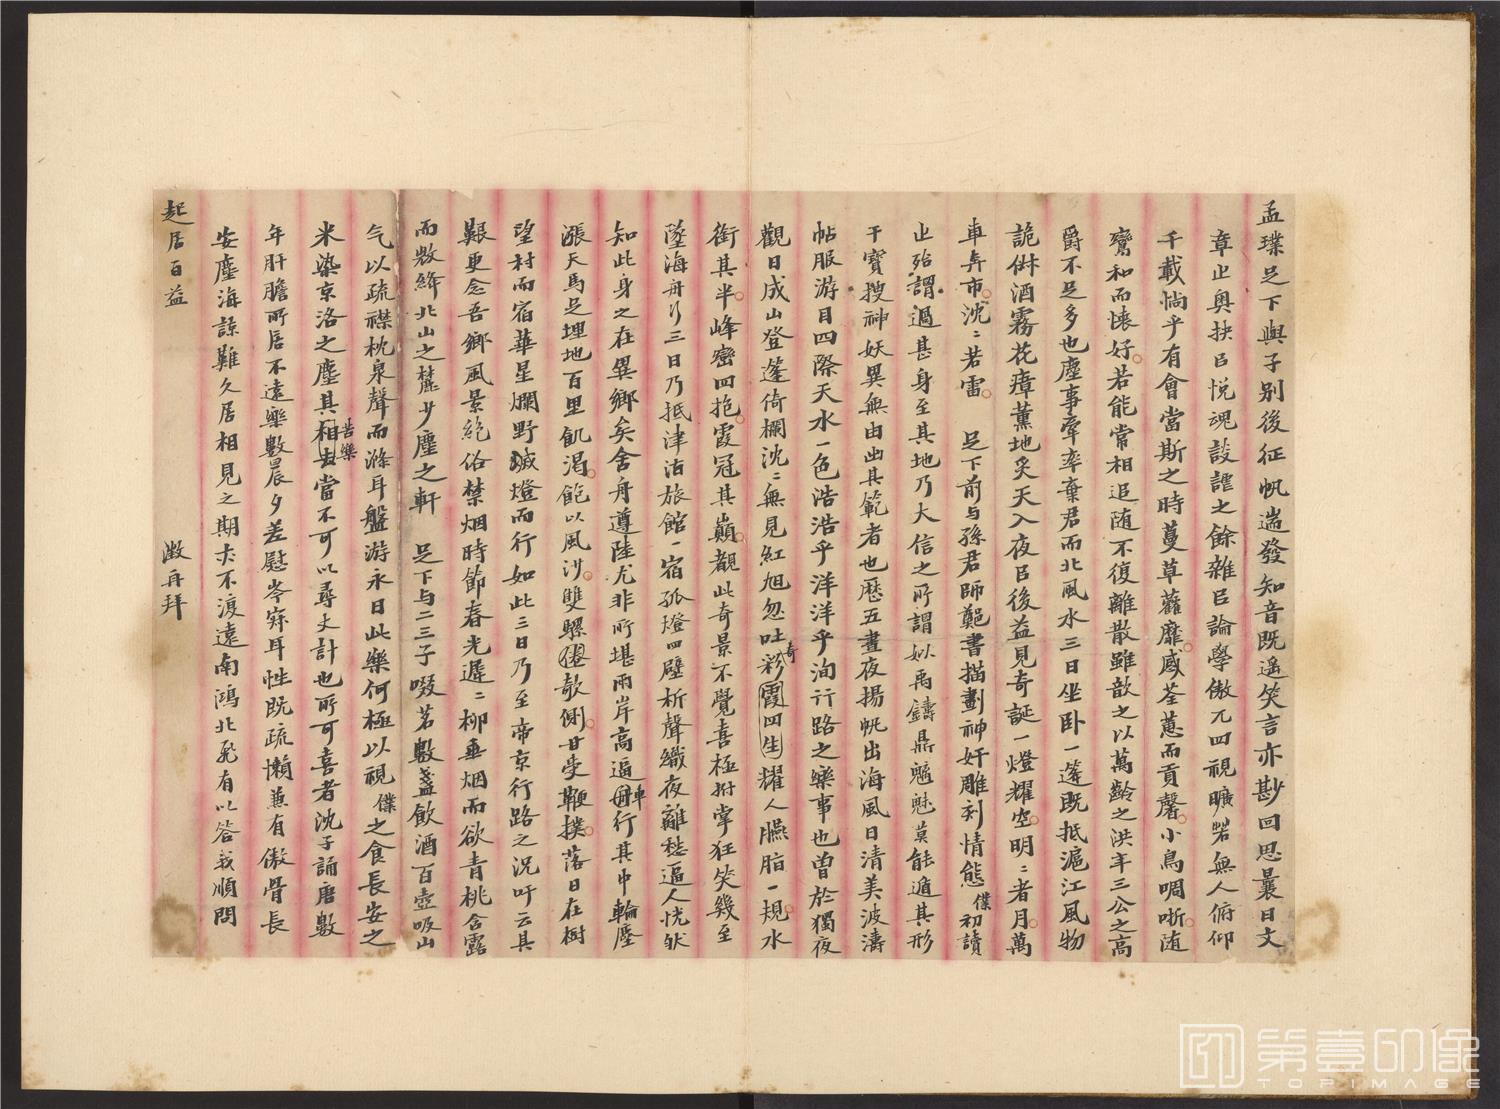 孟璞足下與子別後征帆遄發知音既遥笑言亦尠回思曩日文
章止奧抉臣悅魂談謔之餘雜臣論學傲兀四視曠若無人俯仰
千載惝乎有會當斯之時蔓草蘿靡感荃蕙而貢馨小鳥啁哳随
鸞和而懐好若能常相追随不復離散雖歆之以萬齡之洪年三公之高
爵不足多也塵事牽率棄君而北風水三日坐卧一篷既抵滬江風物
詭倂酒霧花瘴薰地炙天入夜已後益見奇誕一燈耀空明〻者月萬
車奔市沈〻若雷 足下前与孫君師鄭書描劃神奸雕刻情態僕初讀
止殆謂過甚身至其地乃大信之所謂姒禹鑄鼎魑魅莫能遁其形
干寶搜神妖異無由出其範者也歷五晝夜揚帆出海風日清美波濤
帖服游目四際天水一色浩浩乎洋洋乎洵行路之樂事也曽於獨夜
觀日成山登蓬倚欄沈〻無見紅旭忽吐彩奇霞四生耀人臙脂一規水
銜其半峰巒四抱霞冠其巔覩此奇景不覺喜極拊掌狂笑幾至
墜海舟行三日乃抵津沽旅館一宿孤燈四壁柝聲織夜離愁逼人恍狀
知此身之在異鄉矣舍舟遵陸尤非所堪兩岸高逼毌車行其中輪塵
漲天馬足埋地百里飢渴飽以風沙雙騾僊欹側甘受鞭撲落日在樹
望村而宿華星爛野滅燈而行如此三日乃至帝京行路之况吁云具
艱更念吾鄉風景絶俗禁烟時節春光遲〻柳垂烟而欲青桃含露
而敷絳北山之麓少塵之軒 足下与二三子啜茗數盞飲酒百壺吸山
气以疏襟枕泉聲而滌耳盤游永日此樂何極以視僕之食長安之
米染京洛之塵其相去苦樂當不可以尋丈計也所可喜者沈子誦唐數
年肝膽所居不遠樂數晨夕差慰岑寂耳性既疏懶兼有傲骨長
安塵海諒難久居相見之期夫不復遠南鴻北飛有以答我順問
起居百益 澂再拜
第壹印像
TOPIMAGE